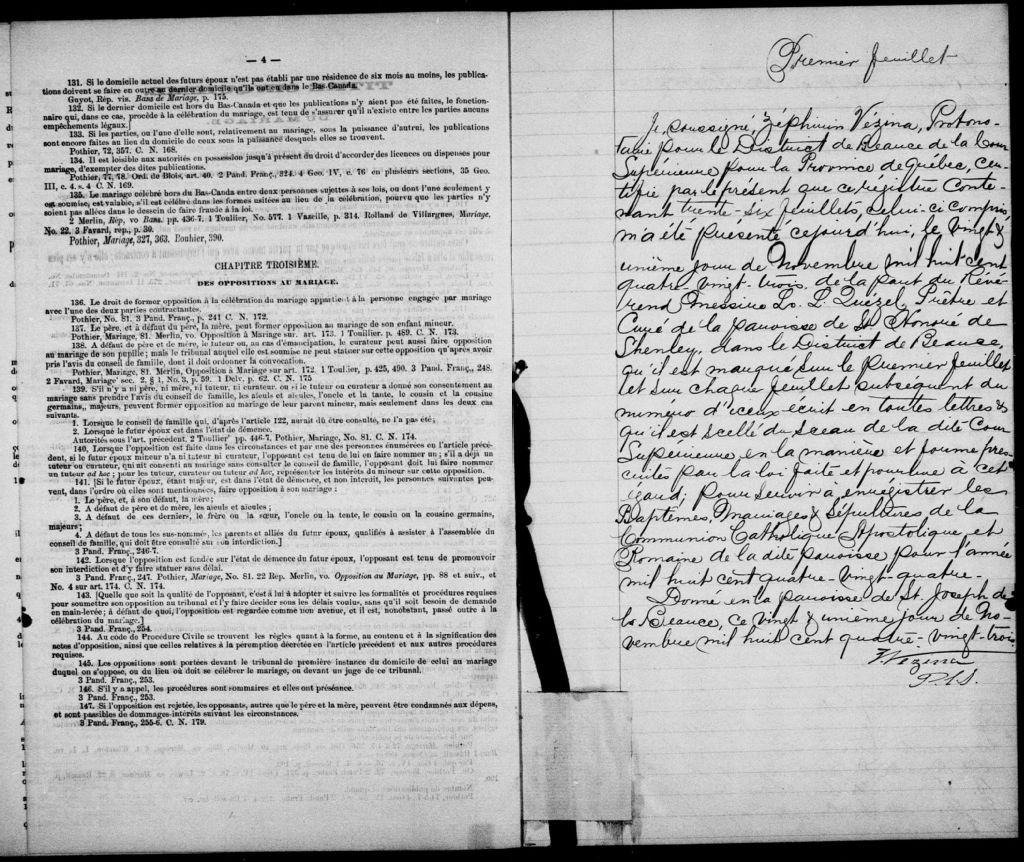 — 4 —
131. Si le domicile actuel des futurs époux n'est pas établi par une résidence de six mois au moins, les publica-
tions doivent se faire en outre au dernier domicile qu'ils ont eu dans le Bas-Canada.
Guyot, Rép. vis. Bans de Mariage, p. 175.
132. Si le dernier domicile est hors du Bas-Canada et que les publications n'y aient pas été faites, le fonction-
naire qui, dans ce cas, procède à la célébration du mariage, est tenu de s'assurer qu'il n'existe entre les parties aucuns
empêchements légaux.
133. Si les parties, ou l'une d'elles sont, relativement au mariage, sous la puissance d'autrui, les publications
sont encore faites au lieu du domicile de ceux sous la puissance desquels elles se trouvent.
Pothier, 72, 357. C. N. 168.
134. Il est loisible aux autorités en possession jusqu'à présent du droit d'accorder des licences ou dispenses pour
mariage, d'exempter des dites publications.
Pothier, 77, 78. Ord. de Blois, art. 40. 2 Pand. Franç., 324. 4 Geo. IV, c. 76 en plusieurs sections, 35 Geo.
III, c. 4. s. 4 C. N. 169.
135. Le mariage célébré hors du Bas-Canda entre deux personnes sujettes à ses lois, ou dont l'une seulement y
est soumise, est valable, s'il est célébré dans les formes usitées au lieu de la célébration, pourvu que les parties n'y
soient pas allées dans le dessein de faire fraude à la loi.
2 Merlin, Rép, vo Bans. pp. 436-7. 1 Toullier, No. 577. 1 Vazeille, p. 314. Rolland de Villargues, Mariage,
No. 22. 3 Favard, rép., p. 30.
Pothier, Mariage, 327, 363. Bouhier, 390.
CHAPITRE TROISIÈME.
DES OPPOSITIONS AU MARIAGE.
136. Le droit de former opposition à la célébration du mariage appartient à la personne engagée par mariage
avec l'une des deux parties contractantes.
Pothier, No. 81. 3 Pand. Franç., p. 241 C. N. 172.
137. Le père, et à défaut du père, la mère, peut former opposition au mariage de son enfant mineur.
Pothier, Mariage, 81. Merlin, vo Opposition à Mariage sur. art. 173. 1 Toullier. p. 489. C. N. 173.
138. A défaut de père et de mère, le tuteur ou, au cas d'émancipation, le curateur peut aussi faire opposition
au mariage de son pupille; mais le tribunal auquel elle est soumise ne peut statuer sur cette opposition qu'après avoir
pris l'avis du conseil de famille, dont il doit ordonner la convocation.
Pothier, Mariage, 81. Merlin, Opposition à Mariage sur art. 172. 1 Toulier, p. 425, 490. 3 Pand. Franç., 248.
2 Favard, Mariage' sec. 2. § 1, No. 3, p. 59. 1 Delv. p. 62. C. N. 175
139. S'il n'y a ni père, ni mère, ni tuteur, ni curateur, ou si le tuteur ou curateur a donné son consentement au
mariage sans prendre l'avis du conseil de famille, les aïeuls et aïeules, l'oncle et la tante, le cousin et la cousine
germains,, majeurs, peuvent former opposition au mariage de leur parent mineur, mais seulement dans les deux cas
suivants.
1. Lorsque le conseil de famille qui, d'après l'article 122, aurait dû être consulté, ne l'a pas été;
2. Lorsque le futur époux est dans l'état de démence.
Autorités sous l'art. précédent. 2 Toullier' pp. 446-7. Pothier, Mariage, No. 81. C. N. 174.
140. Lorsque l'opposition est faite dans les circonstances et par une des personnes énumérées en l'article précé-
dent, si le futur époux mineur n'a ni tuteur ni curateur, l'opposant est tenu de lui en faire nommer un; s'il a déjà un
tuteur ou curateur, qui ait consenti au mariage sans consulter le conseil de famille, l'opposant doit lui faire nommer
un tuteur ad hoc; pour les tuteur, curateur ou tuteur ad hoc, représenter les intérêts du mineur sur cette opposition.
141. [Si le futur époux, étant majeur, est dans l'état de démence, et non interdit, les personnes suivantes peu-
vent, dans l'ordre où elles sont mentionnées, faire opposition à son mariage:
1. Le père, et, à son défaut, la mère;
2. A défaut de père et de mère, les aïeuls et aïeules;
3. A défaut de ces derniers, le frère ou la sœur, l'oncle ou la tante, le cousin ou la cousine germains,
majeurs;
4. A défaut de tous les sus-nommés, les parents et alliés du futur époux, qualifiés à assister à l'assemblée du
conseil de famille, qui doit être consulté sur son interdiction.]
3 Pand. Franç., 246-7.
142. Lorsque l'opposition est fondée sur l'état de démence du futur époux, l'opposant est tenu de promouvoir
son interdiction et d'y faire statuer sans délai.
3 Pand. Franç., 247. Pothier, Mariage, No. 81. 22 Rep. Merlin, vo. Opposition au Mariage, pp. 88 et suiv., et
No. 4 sur art. 174. C. N. 174.
143. [Quelle que soit la qualité de l'opposant, c'est à lui à adopter et suivre les formalités et procédures requises
pour soumettre son opposition au tribunal et l'y faire décider sous les délais voulus, sans qu'il soit besoin de demande
en main-levée; à défaut de quoi, l'opposition est regardée comme non avenue, et il est, nonobstant, passé outre à la
célébration du mariage.]
3 Pand. Franç., 254.
144. Au code de Procédure Civile se trouvent les règles quant à la forme, au contenu et à la signification des
actes d'opposition, ainsi que celles relatives à la peremption décrétée en l'article précédent et aux autres procédures
requises.
145. Les oppositions sont portées devant le tribunal de première instance du domicile de celui au mariage
duquel on s'oppose, ou du lieu où doit se célébrer le mariage, ou devant un juge de ce tribunal.
3 Pand. Franç., 253.
146. S'il y a appel, les procédures sont sommaires et elles ont préséance.
3 Pand. Franç., 253.
147. Si l'opposition est rejetée, les opposants, autres que le père et la mère, peuvent être condamnés aux dépens,
et sont passibles de dommages-intérêts suivant les circonstances.
3 Pand. Franç., 255-6. C. N. 179.
Premier feuillet
Je, soussigné, Zéphirin Vézina, Protono-
taire pour le District de Beauce de la Cour
Supérieure pour la Province de Québec, cer-
tifie par le présent que ce registre conte-
nant trente-six feuillets, celui-ci compris
m'a été présenté cejourd'hui, le vingt &
unième jour de Novembre mil huit cent
quatre-vingt-trois, de la part du Révé-
rend Messire Ls. L. Quézel, Prêtre et
Curé de la paroisse de St Honoré de
Shenley, dans le District de Beauce,
qu'il est marqué sur le premier feuillet
et sur chaque feuillet subséquent du
numéro d'iceux écrit en toutes lettres &
qu'il est scellé du sceau de la dite Cour
Supérieure, en la manière et forme pres-
crites par la loi faite et pourvue à cet
égard; pour servir à enrégistrer les
Baptêmes, Mariages & Sépultures de la
Communion Catholique, Apostolique, et
Romaine de la dite paroisse, pour l'année
mil huit cent quatre-vingt-quatre.
Donné en la paroisse de St. Joseph de
la Beauce, ce vingt & unième jour de No-
vembre mil huit cent quatre-vingt-trois.
Z. Vézina
P.C.S.